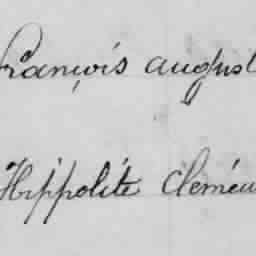 François august
Hippolite clémen